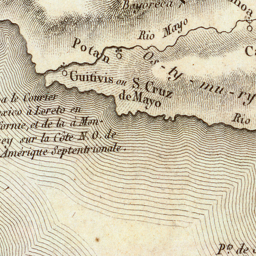 Bayoreca
Rio Mayo
Potam
Os-ty-mu-ry
Guitivis ou S. Cruz
de Mayo
Rio
a le Courier
exico à Loreto en
fornie, et de la à Mon-
rey sur la Côte N.O. de
Amérique Septentrionale.
P.to de S